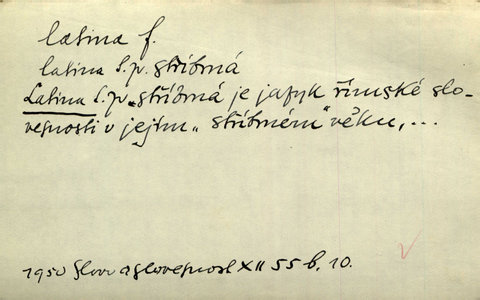 latina f.
latina t.ř. stříbrná
Latina t.ř. „stříbrná je jazyk římské slo-
vesnosti v jejím „stříbrném“ věku, ...
1950 Slovo a slovesnost XII 55 b. 10.